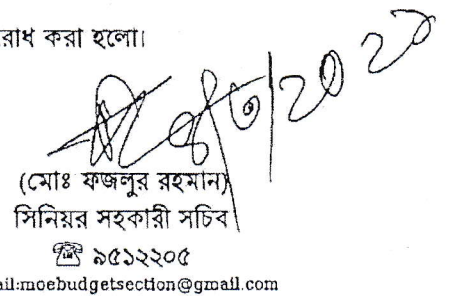 রোধ করা হলো।
(মোঃ ফজলুর রহমান)
সিনিয়র সহকারী সচিব
☎ ৯৫১২২০৫
ail:moebudgetsection@gmail.com